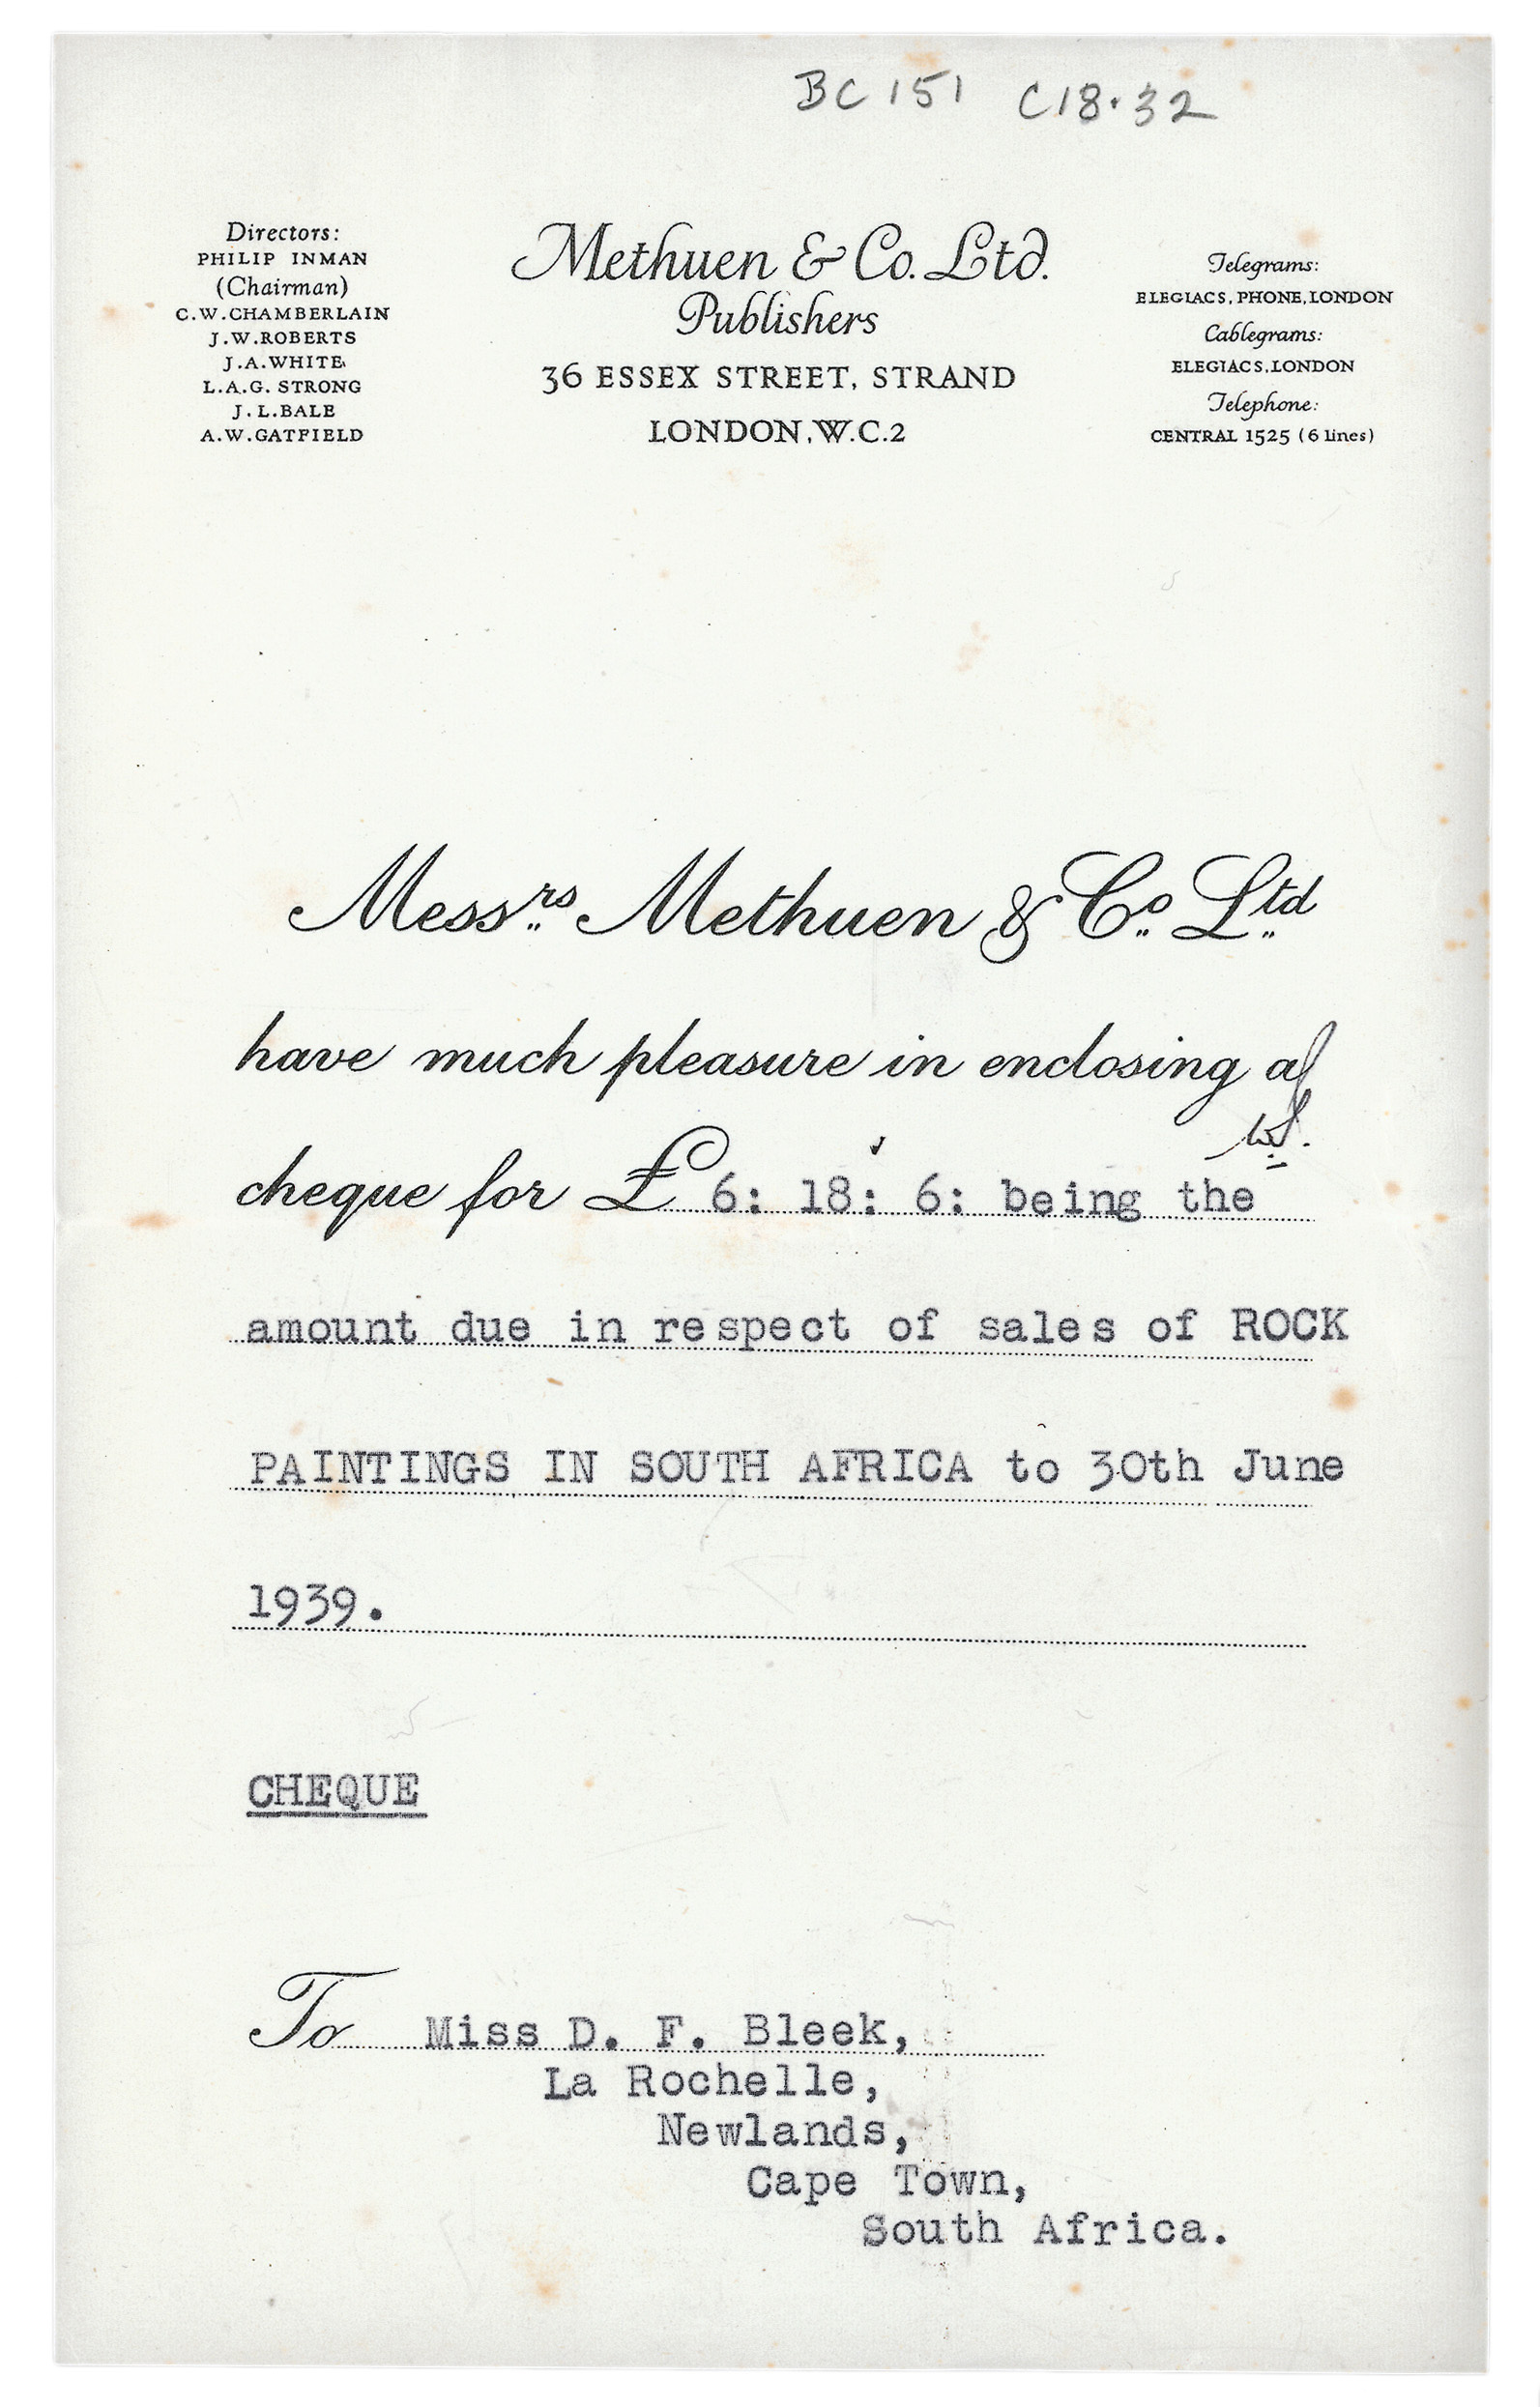 BC 151 C18.32
Directors:
PHILIP INMAN
(Chairman)
C.W.CHAMBERLAIN
J.W.ROBERTS
J.A.WHITE
L.A.G. STRONG
J.L.BALE
A.W.GATFIELD
Methuen & Co. Ltd.
Publishers
36 ESSEX STREET, STRAND
LONDON, W.C.2
Telegrams:
ELEGIACS, PHONE, LONDON
Cablegrams:
ELEGIACS, LONDON
Telephone:
CENTRAL 1525 (6 lines)
Messrs. Methuen & Co. Ltd.
have much pleasure in enclosing a
cheque for £ 6: 18: 6: being the
amount due in respect of sales of ROCK
PAINTINGS IN SOUTH AFRICA to 30th June
1939.
CHEQUE
To Miss D. F. Bleek,
La Rochelle,
Newlands,
Cape Town,
South Africa.